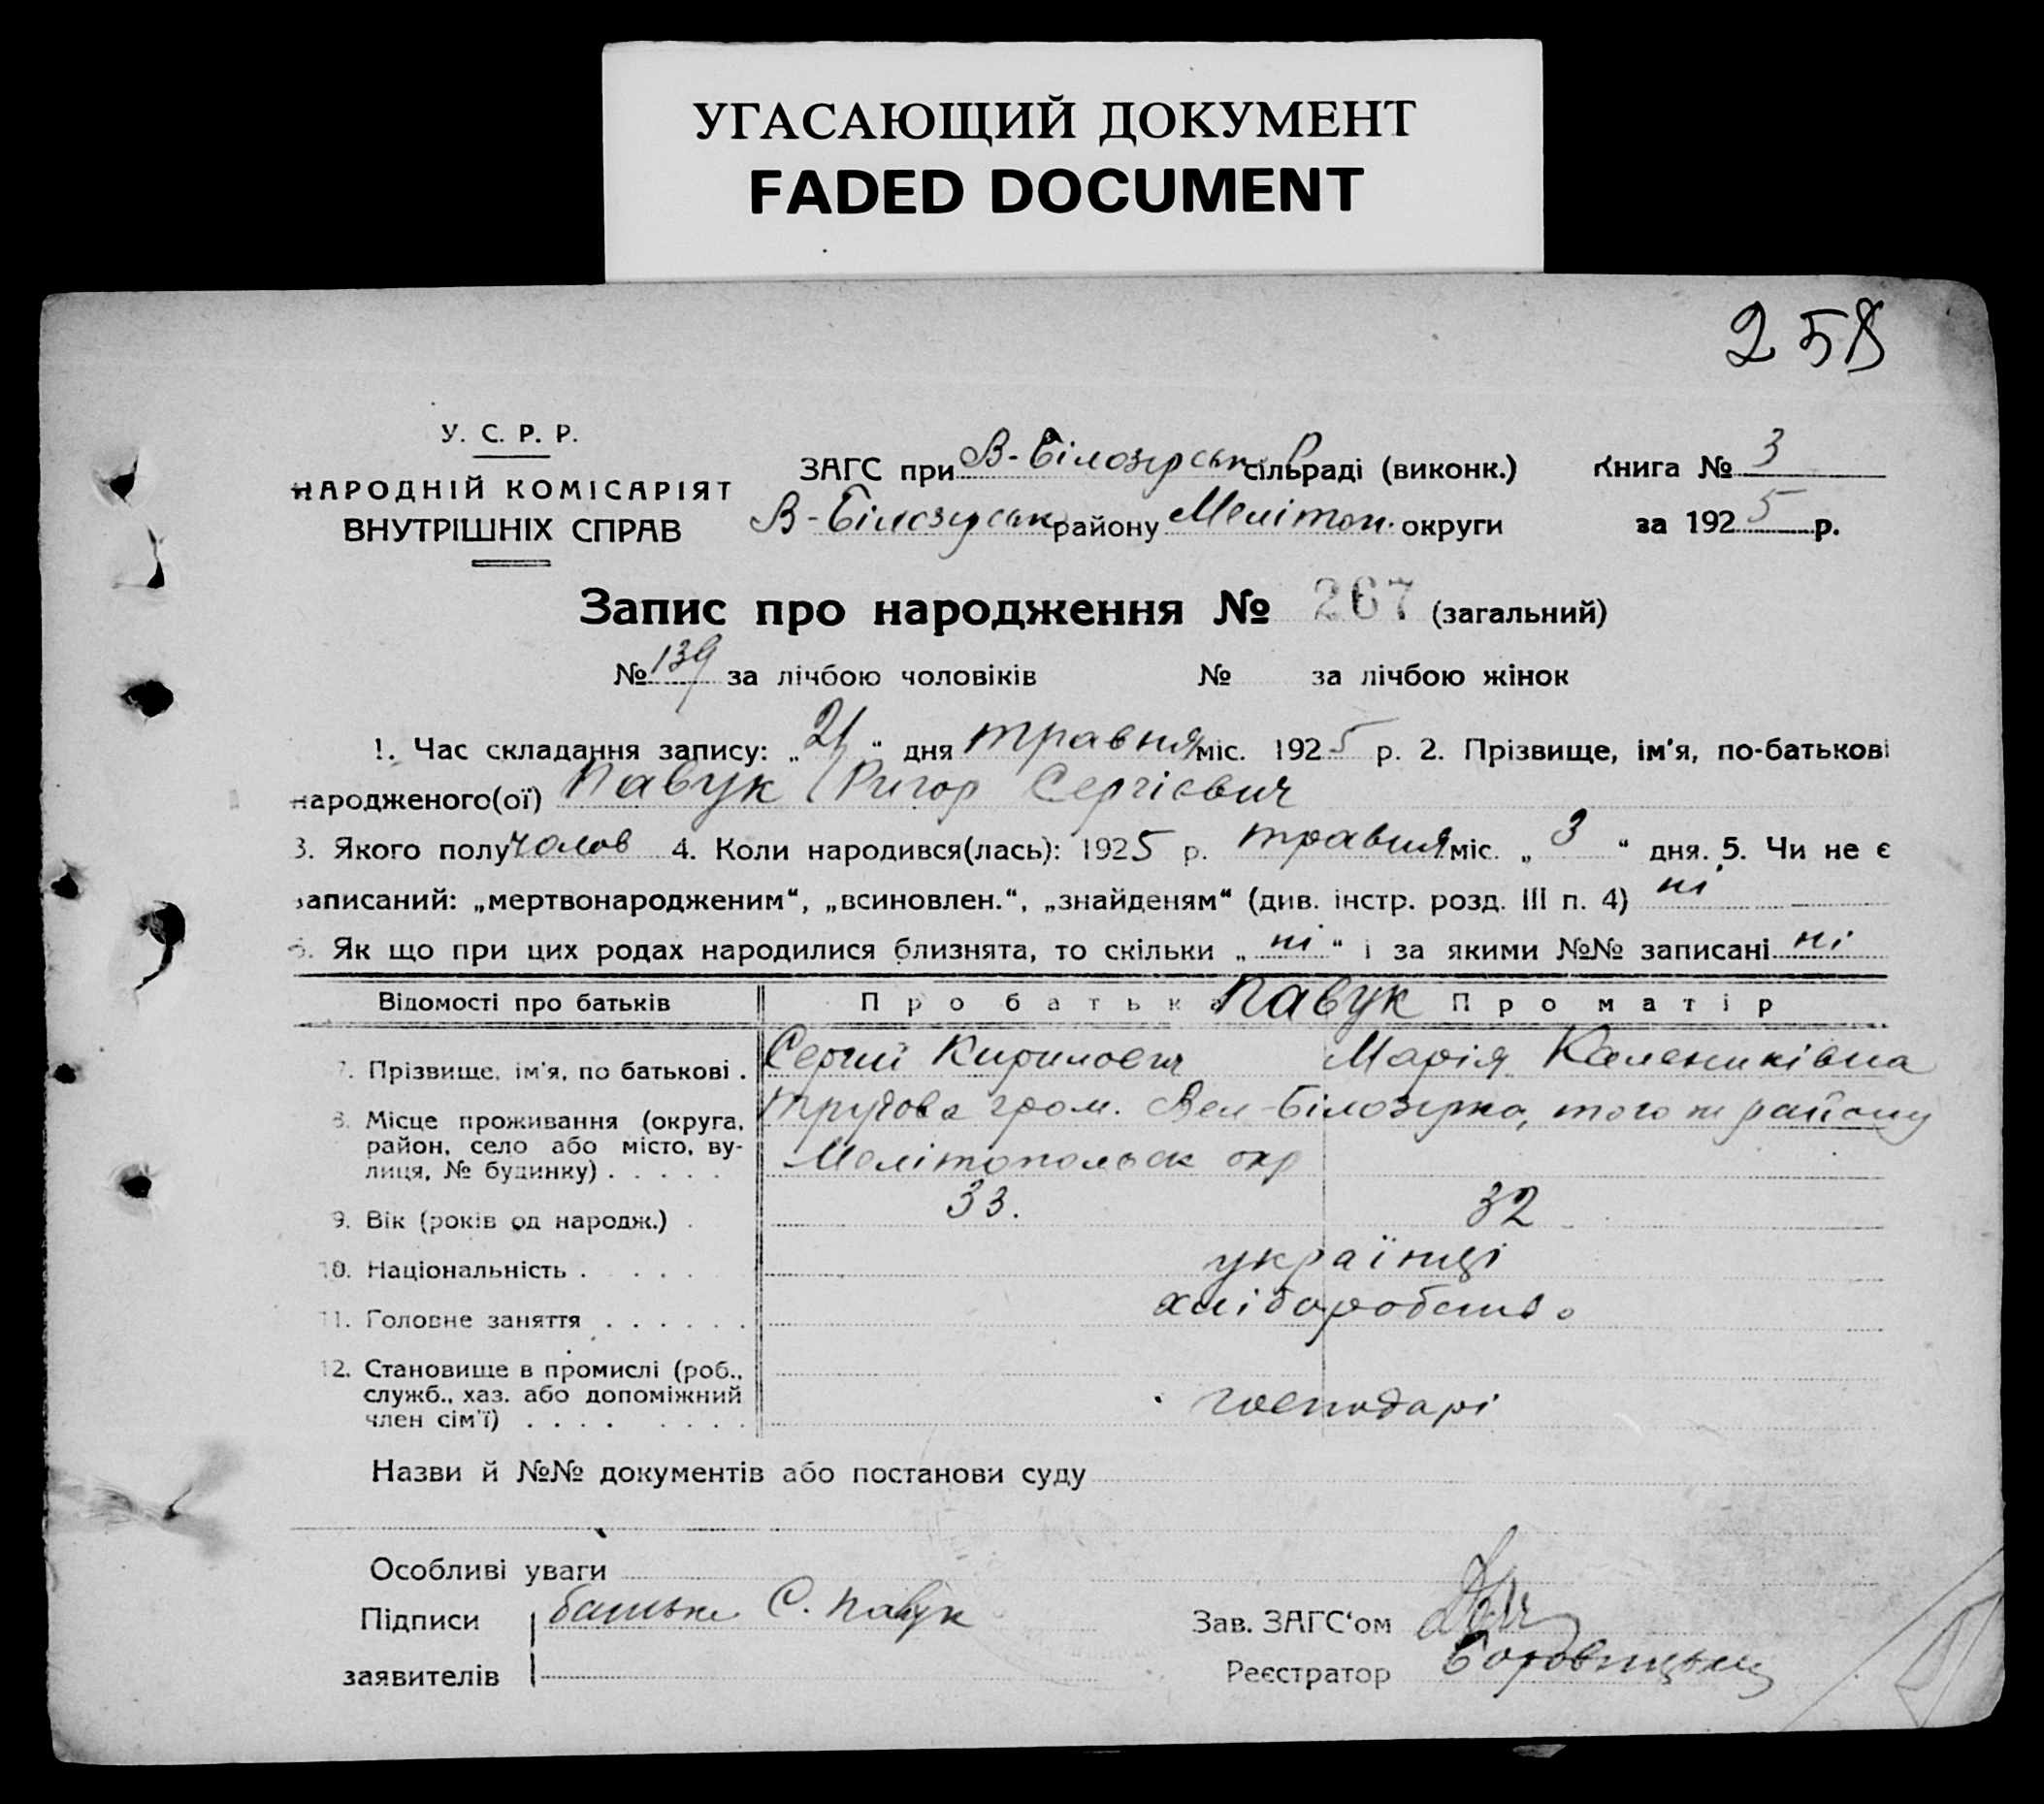 УГАСАЮЩИЙ ДОКУМЕНТ
FADED DOCUMENT
258
У. С. Р. Р.
НАРОДНІЙ КОМІСАРІЯТ
ВНУТРІШНІХ СПРАВ
ЗАГС при В-Білозірськ сільраді (виконк.)
В-Білозірськ району Меліton. округи
Книга № 3
за 1925 р.
Запис про народження № 267 (загальний)
№ 139 за лічбою чоловіків № за лічбою жінок
1. Час складання запису: „21“ дня травня міс. 1925 р. 2. Прізвище, ім'я, по-батькові
народженого(ої) Павук Григор Сергієвич
3. Якого полу чолов 4. Коли народився(лась): 1925 р. травня міс. „3“ дня. 5. Чи не є
записаний: „мертвонародженим“, „всиновлен.“, „знайденям“ (див. інстр. розд. III п. 4) ні
6. Як що при цих родах народилися близнята, то скільки „ні“ і за якими №№ записані ні
Відомості про батьків Про батька Павук Про матір
7. Прізвище, ім'я, по батькові . Сергий Кирилович Марія Калениківна
8. Місце проживання (округа, район, село або місто, вулиця, № будинку) . . . . . Трудова гром. Вел-Білозірка, того ж району
Мелітопольськ окр
9. Вік (років од народж.) . 33. 32
10. Національність . . . . українці
11. Головне заняття . . . . . . хліборобство
12. Становище в промислі (роб.,
служб., хаз. або допоміжний
член сім'ї) . . . . . . . . господарі
Назви й №№ документів або постанови суду
Особливі уваги
Підписи батько С. Павук
заявителів
Зав. ЗАГС'ом
Реєстратор